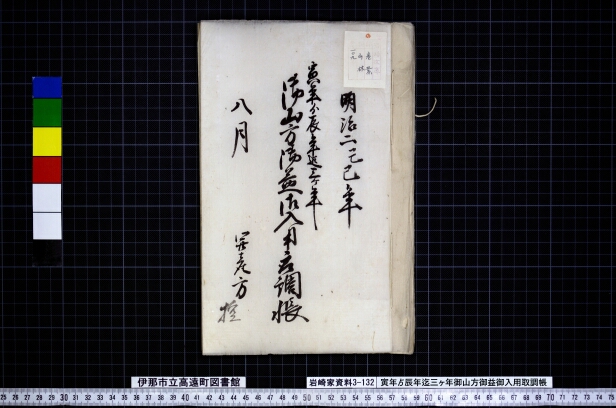 明治二己巳年
寅年ゟ辰年迄三ヶ年
御山方御益御入用取調帳
八月
産物方
控
伊那市立高遠町図書館
岩崎家資料3-132
寅年ゟ辰年迄三ヶ年御山方御益御入用取調帳